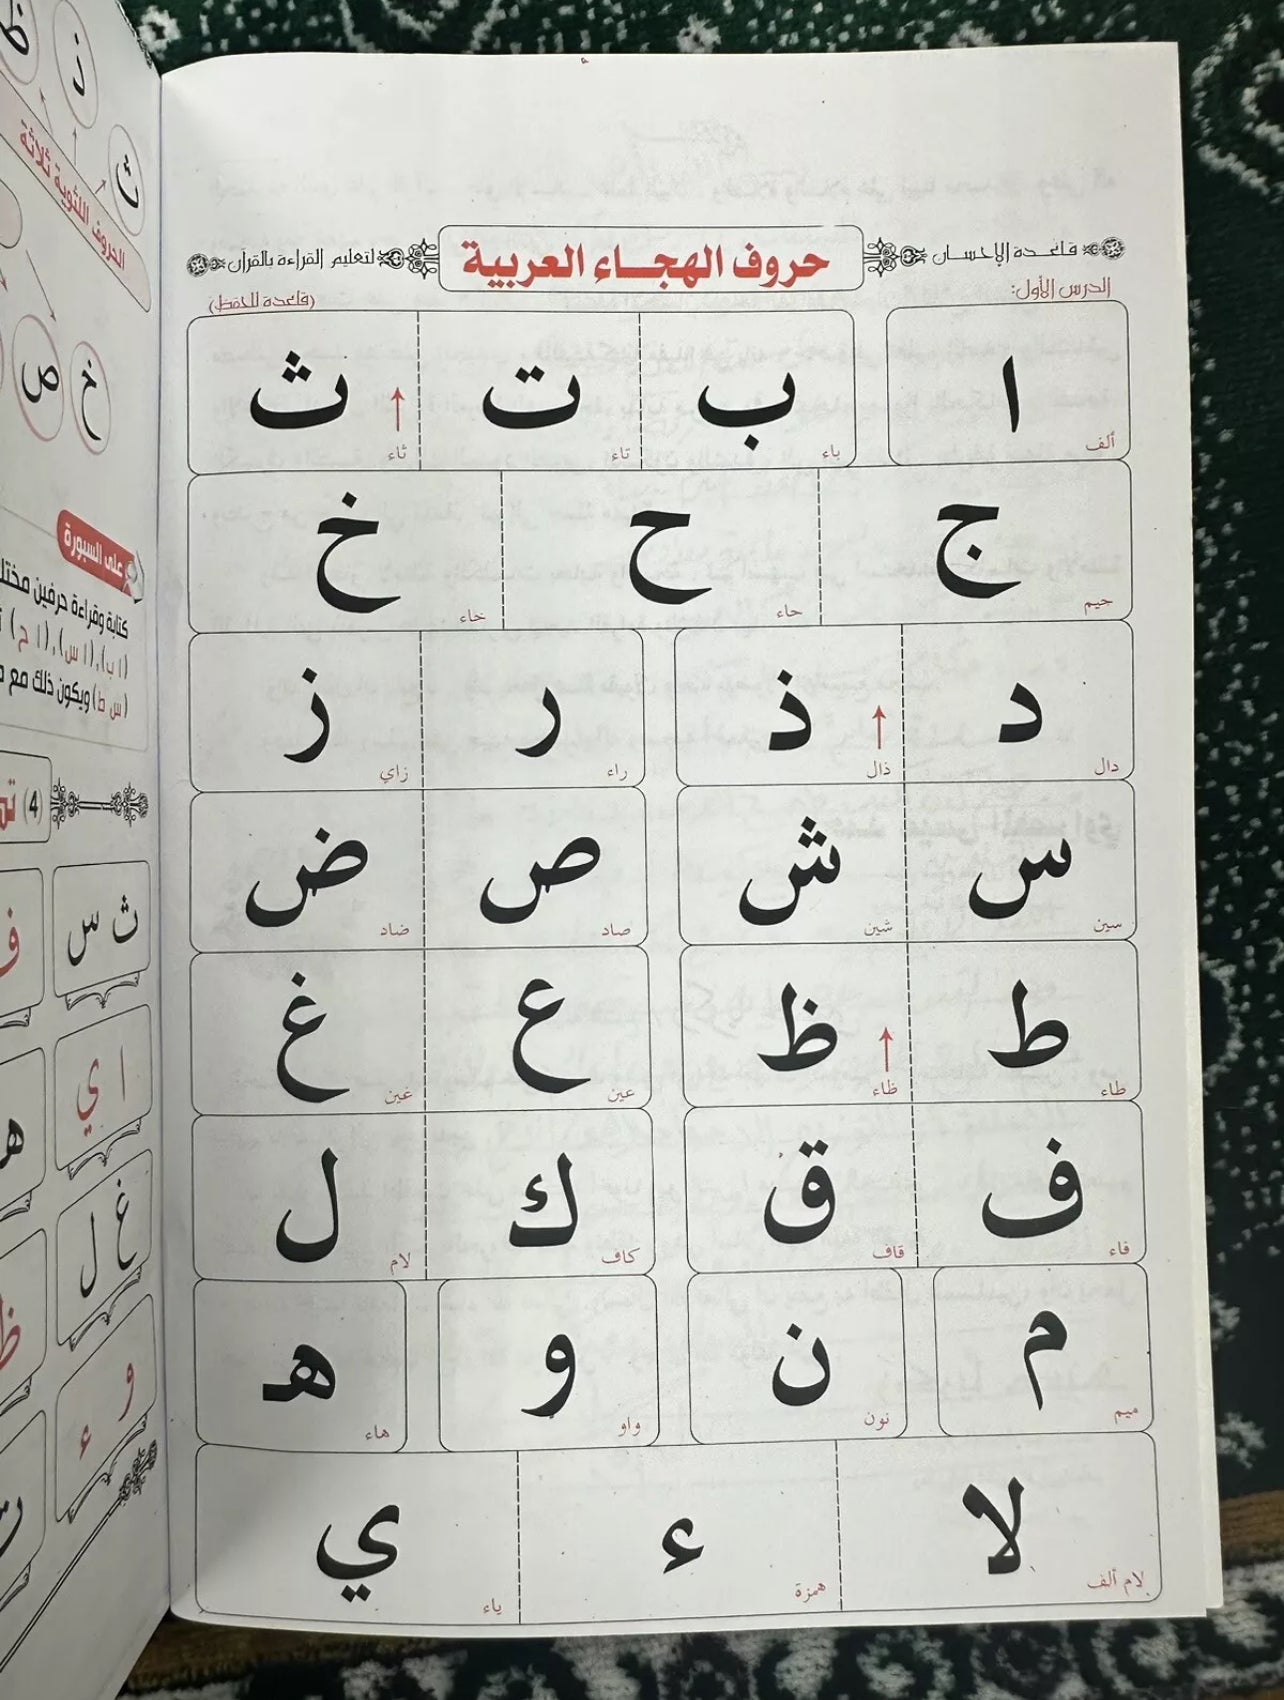 قاعدة الإحسان
حروف الهجاء العربية
لتعليم القراءة بالقرآن
الدرس الأول:
(قاعدة للحفظ)
ا ب ت ث
ألف باء تاء ثاء
ج ح خ
جيم حاء خاء
د ذ ر ز
دال ذال راء زاي
س ش ص ض
سين شين صاد ضاد
ط ظ ع غ
طاء ظاء عين غين
ف ق ك ل
فاء قاف كاف لام
م ن و ه
ميم نون واو هاء
لا ء ي
لام ألف همزة ياء
ظ ذ ث
الحروف اللثوية ثلاثة
خ ص
على السبورة
كتابة وقراءة حرفين
(ا ب)، (ا س)، (ا ح)
(س ط) ويكون ذلك مع
(4)
ث س
ف
ا ي
ه
غ ل
ظ
و ء